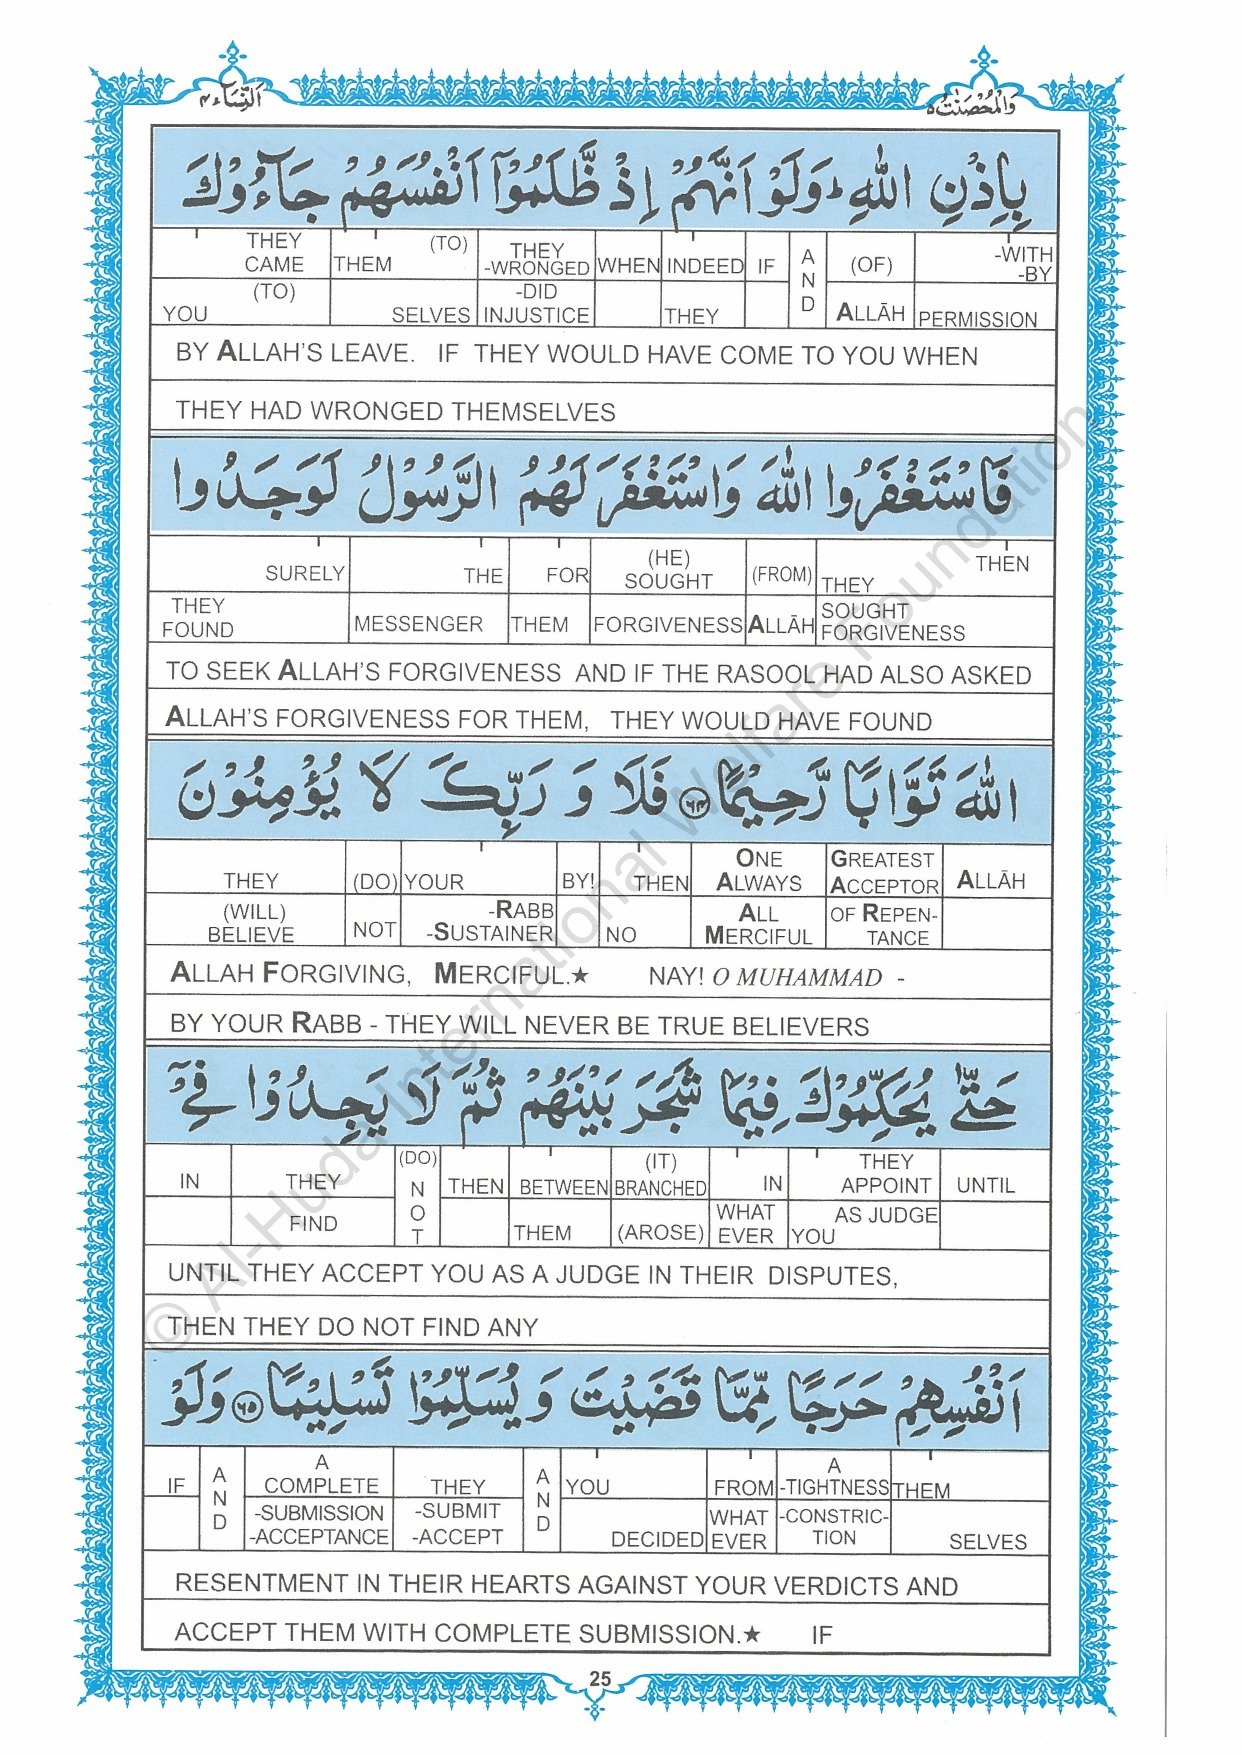 اَلنِّسَآء ٤
وَالْمُحْصَنٰتُ ٥
بِاِذْنِ اللّٰهِ ؕ وَلَوْ اَنَّهُمْ اِذْ ظَّلَمُوْۤا اَنْفُسَهُمْ جَآءُوْكَ
THEY CAME | THEM (TO) | THEY -WRONGED | WHEN | INDEED | IF | AND | (OF) | -WITH -BY
YOU (TO) | SELVES | -DID INJUSTICE | THEY | ALLĀH | PERMISSION
BY ALLAH'S LEAVE. IF THEY WOULD HAVE COME TO YOU WHEN
THEY HAD WRONGED THEMSELVES
فَاسْتَغْفَرُوا اللّٰهَ وَاسْتَغْفَرَ لَهُمُ الرَّسُوْلُ لَوَجَدُوا
SURELY | THE | FOR | (HE) SOUGHT | (FROM) | THEY THEN
THEY FOUND | MESSENGER | THEM | FORGIVENESS | ALLĀH | SOUGHT FORGIVENESS
TO SEEK ALLAH'S FORGIVENESS AND IF THE RASOOL HAD ALSO ASKED
ALLAH'S FORGIVENESS FOR THEM, THEY WOULD HAVE FOUND
اللّٰهَ تَوَّابًا رَّحِيْمًا ﴿٦٤﴾ فَلَا وَ رَبِّكَ لَا يُؤْمِنُوْنَ
THEY | (DO) | YOUR | BY! | THEN | ONE ALWAYS | GREATEST ACCEPTOR | ALLĀH
(WILL) BELIEVE | NOT | -RABB -SUSTAINER | NO | ALL MERCIFUL | OF REPEN- TANCE
ALLAH FORGIVING, MERCIFUL.★ NAY! O MUHAMMAD -
BY YOUR RABB - THEY WILL NEVER BE TRUE BELIEVERS
حَتّٰى يُحَكِّمُوْكَ فِيْمَا شَجَرَ بَيْنَهُمْ ثُمَّ لَا يَجِدُوْا فِيْۤ
IN | THEY | (DO) NOT | THEN | BETWEEN | (IT) BRANCHED | IN | THEY APPOINT | UNTIL
FIND | THEM | (AROSE) | WHAT EVER | YOU AS JUDGE
UNTIL THEY ACCEPT YOU AS A JUDGE IN THEIR DISPUTES,
THEN THEY DO NOT FIND ANY
اَنْفُسِهِمْ حَرَجًا مِّمَّا قَضَيْتَ وَ يُسَلِّمُوْا تَسْلِيْمًا ﴿٦٥﴾ وَلَوْ
IF | AND | A COMPLETE | THEY | AND | YOU | FROM | A -TIGHTNESS | THEM
-SUBMISSION -ACCEPTANCE | -SUBMIT -ACCEPT | DECIDED | WHAT EVER | -CONSTRIC- TION | SELVES
RESENTMENT IN THEIR HEARTS AGAINST YOUR VERDICTS AND
ACCEPT THEM WITH COMPLETE SUBMISSION.★ IF
25
© Al-Huda International Welfare Foundation